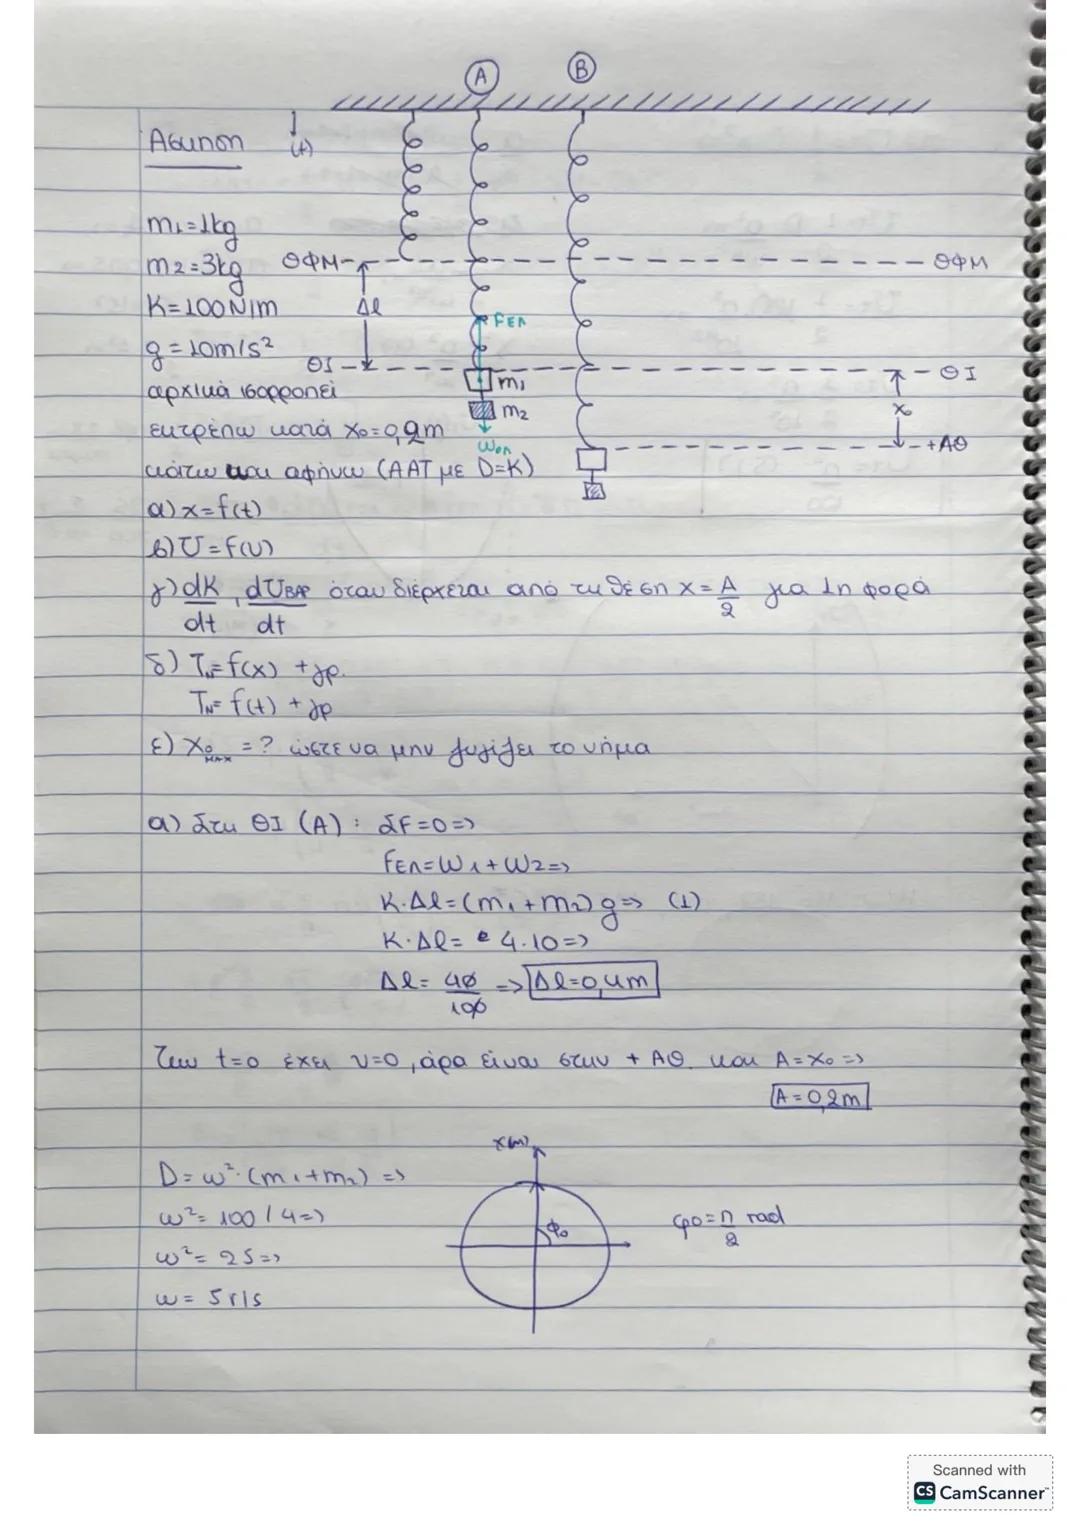 Ⓐ Ⓑ
Άσκηση (+)
m₁=1kg
m₂=3kg ΘΦΜ ΘΦΜ
K=100N/m Δl FΕΛ
g=10m/s² ΘΙ m₁ ΘΙ
αρχικά ισορροπεί m₂ x₀
εκτρέπω κατά x₀=0,2m Wολ +ΑΘ
κάτω και αφήνω (ΑΑΤ με D=K)
α) x=f(t)
β) U=f(υ)
γ) dK/dt, dUΒΑΡ/dt όταν διέρχεται από τη θέση x=A/2 για 1η φορά
δ) TN=f(x) +γρ.
TN=f(t) +γρ
ε) x₀ MAX =? ώστε να μην λυγίζει το νήμα
α) Στη ΘΙ (A): ΣF=0=>
FΕΛ=W₁+W₂=>
K·Δl=(m₁+m₂)g=> (1)
K·Δl= 4·10=>
Δl= 40/100 => Δl=0,4m
Την t=0 έχει υ=0, άρα είναι στην +ΑΘ και A=x₀=>
A=0,2m
x(m)
D=ω²·(m₁+m₂) =>
ω²= 100/4=> φ₀ φ₀=π/2 rad
ω²= 25=>
ω= 5r/s
Scanned with
CS CamScanner™